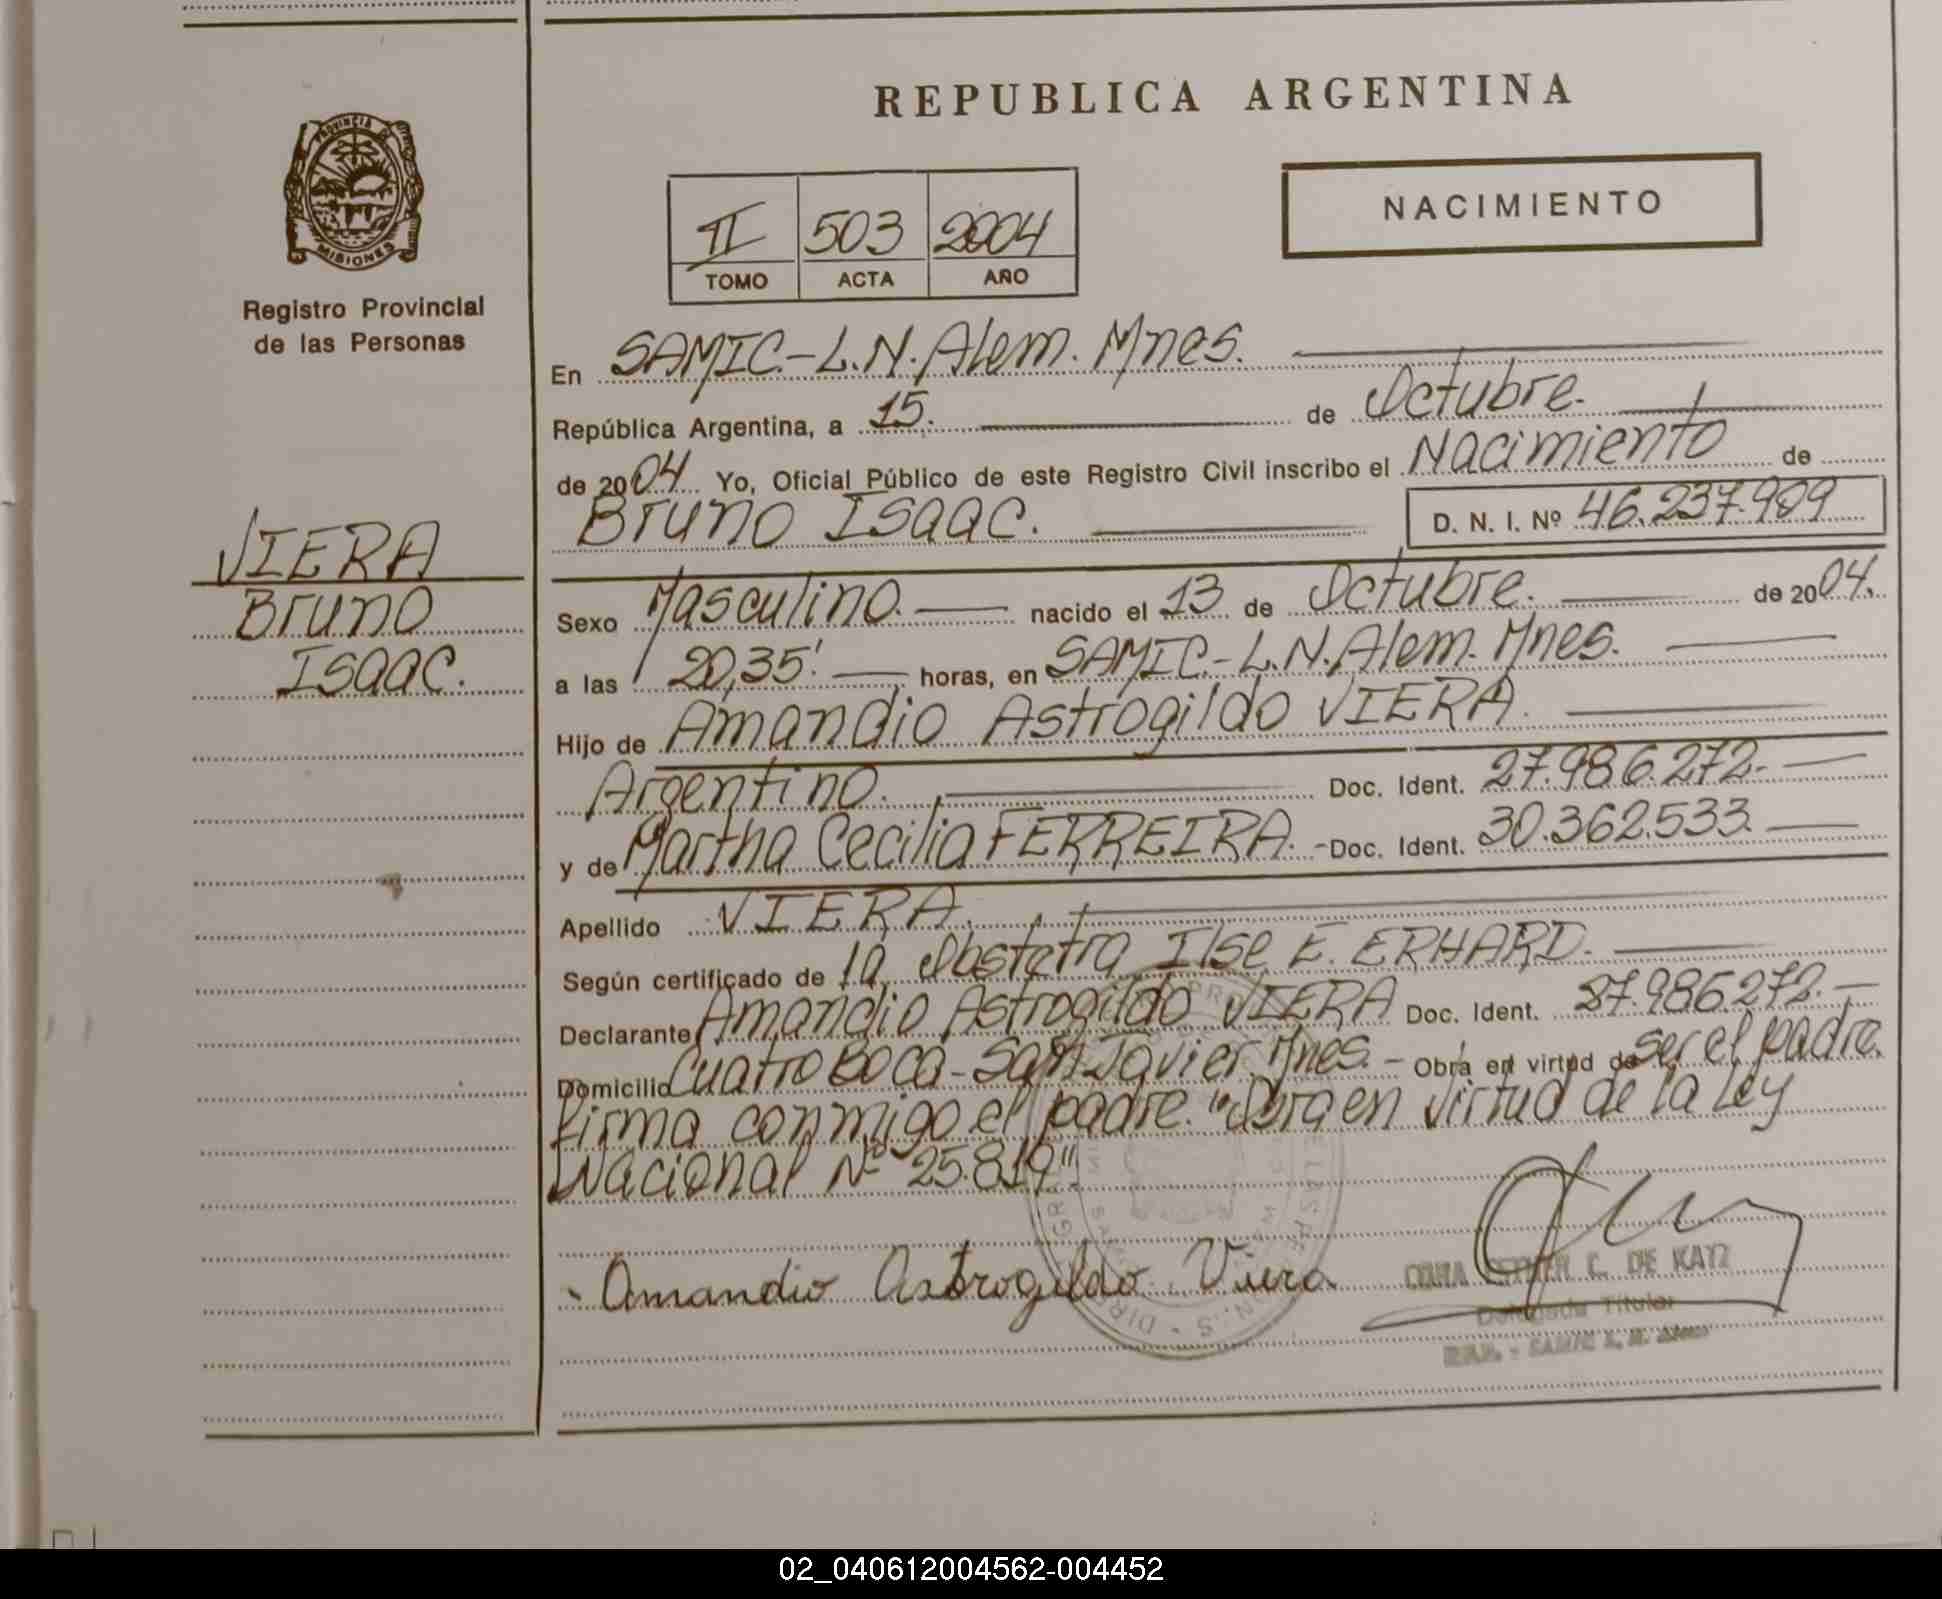 REPUBLICA ARGENTINA
PROVINCIA DE
MISIONES
Registro Provincial
de las Personas
II 503 2004
TOMO ACTA AÑO
NACIMIENTO
VIERA
Bruno
Isaac.
En SAMIC.-L.N.Alem. Mnes.
República Argentina, a 15. de Octubre.
de 2004 Yo, Oficial Público de este Registro Civil inscribo el Nacimiento de
Bruno Isaac. D. N. I. Nº 46.237.909
Sexo Masculino. nacido el 13 de Octubre. de 2004.
a las 20,35' horas, en SAMIC.-L.N.Alem. Mnes.
Hijo de Amandio Astrogildo VIERA.
Argentino. Doc. Ident. 27.986.272.-
y de Martha Cecilia FERREIRA. -Doc. Ident. 30.362.533.
Apellido VIERA.
Según certificado de la Obstetra Ilse E. ERHARD.
Declarante Amandio Astrogildo VIERA Doc. Ident. 27.986272.-
Domicilio Cuatro Boca-San Javier Mnes.- Obra en virtud de ser el padre.
firma conmigo el padre. "Obra en virtud de la Ley
Nacional Nº 25.819"
Amandio Astrogildo Viera
C. DE KATZ
Delegada Titular
SAMIC L. N. Alem
02_040612004562-004452